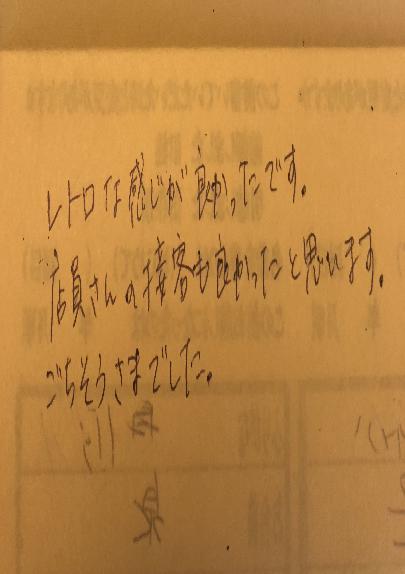 レトロな感じが良かったです。
店員さんの接客も良かったと思います。
ごちそうさまでした。